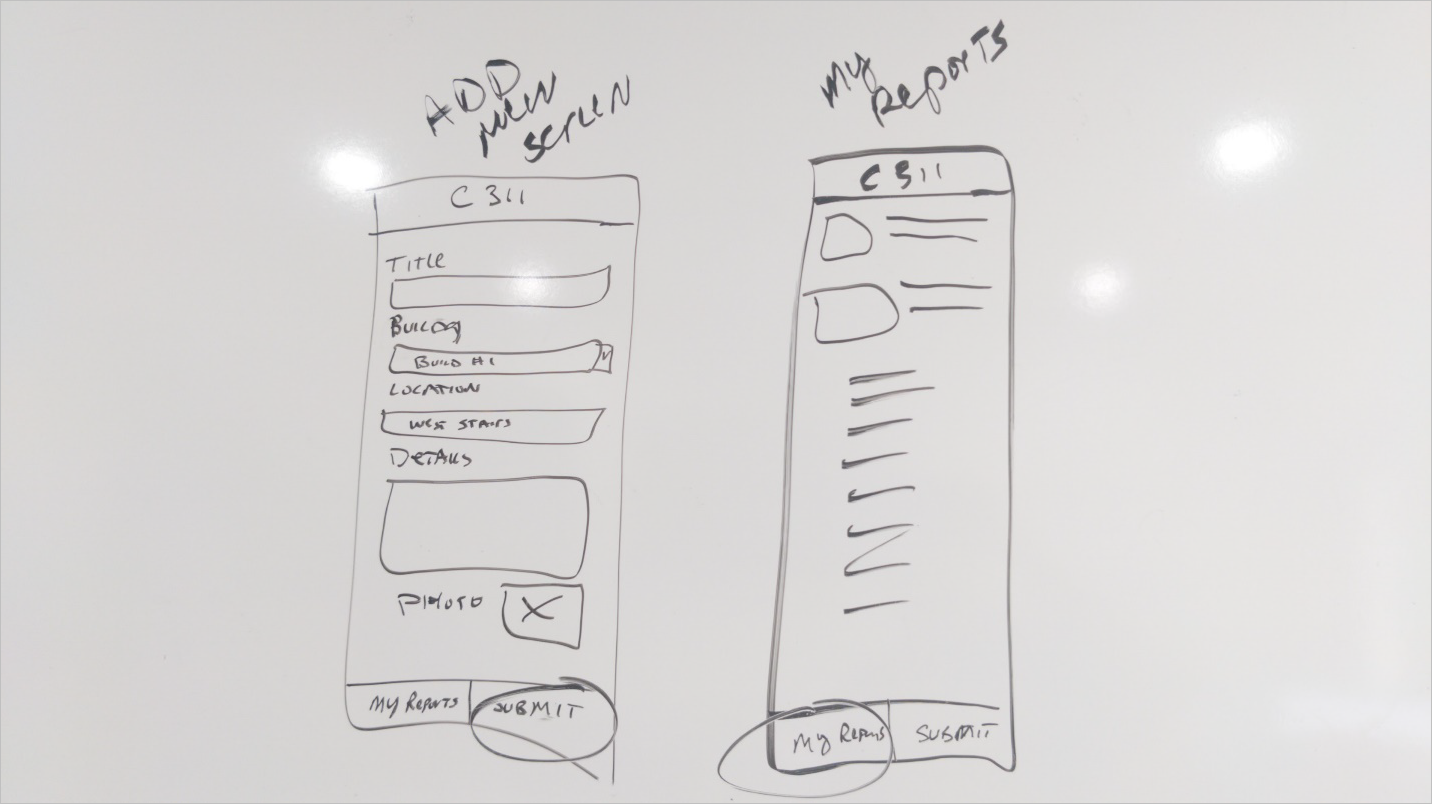 ADD
NEW
SCREEN
C 311
TITLE
BUILDG
BUILD #1
LOCATION
WEST STAIRS
DETAILS
PHOTO
MY REPORTS
SUBMIT
MY
REPORTS
C 311
MY REPORTS
SUBMIT